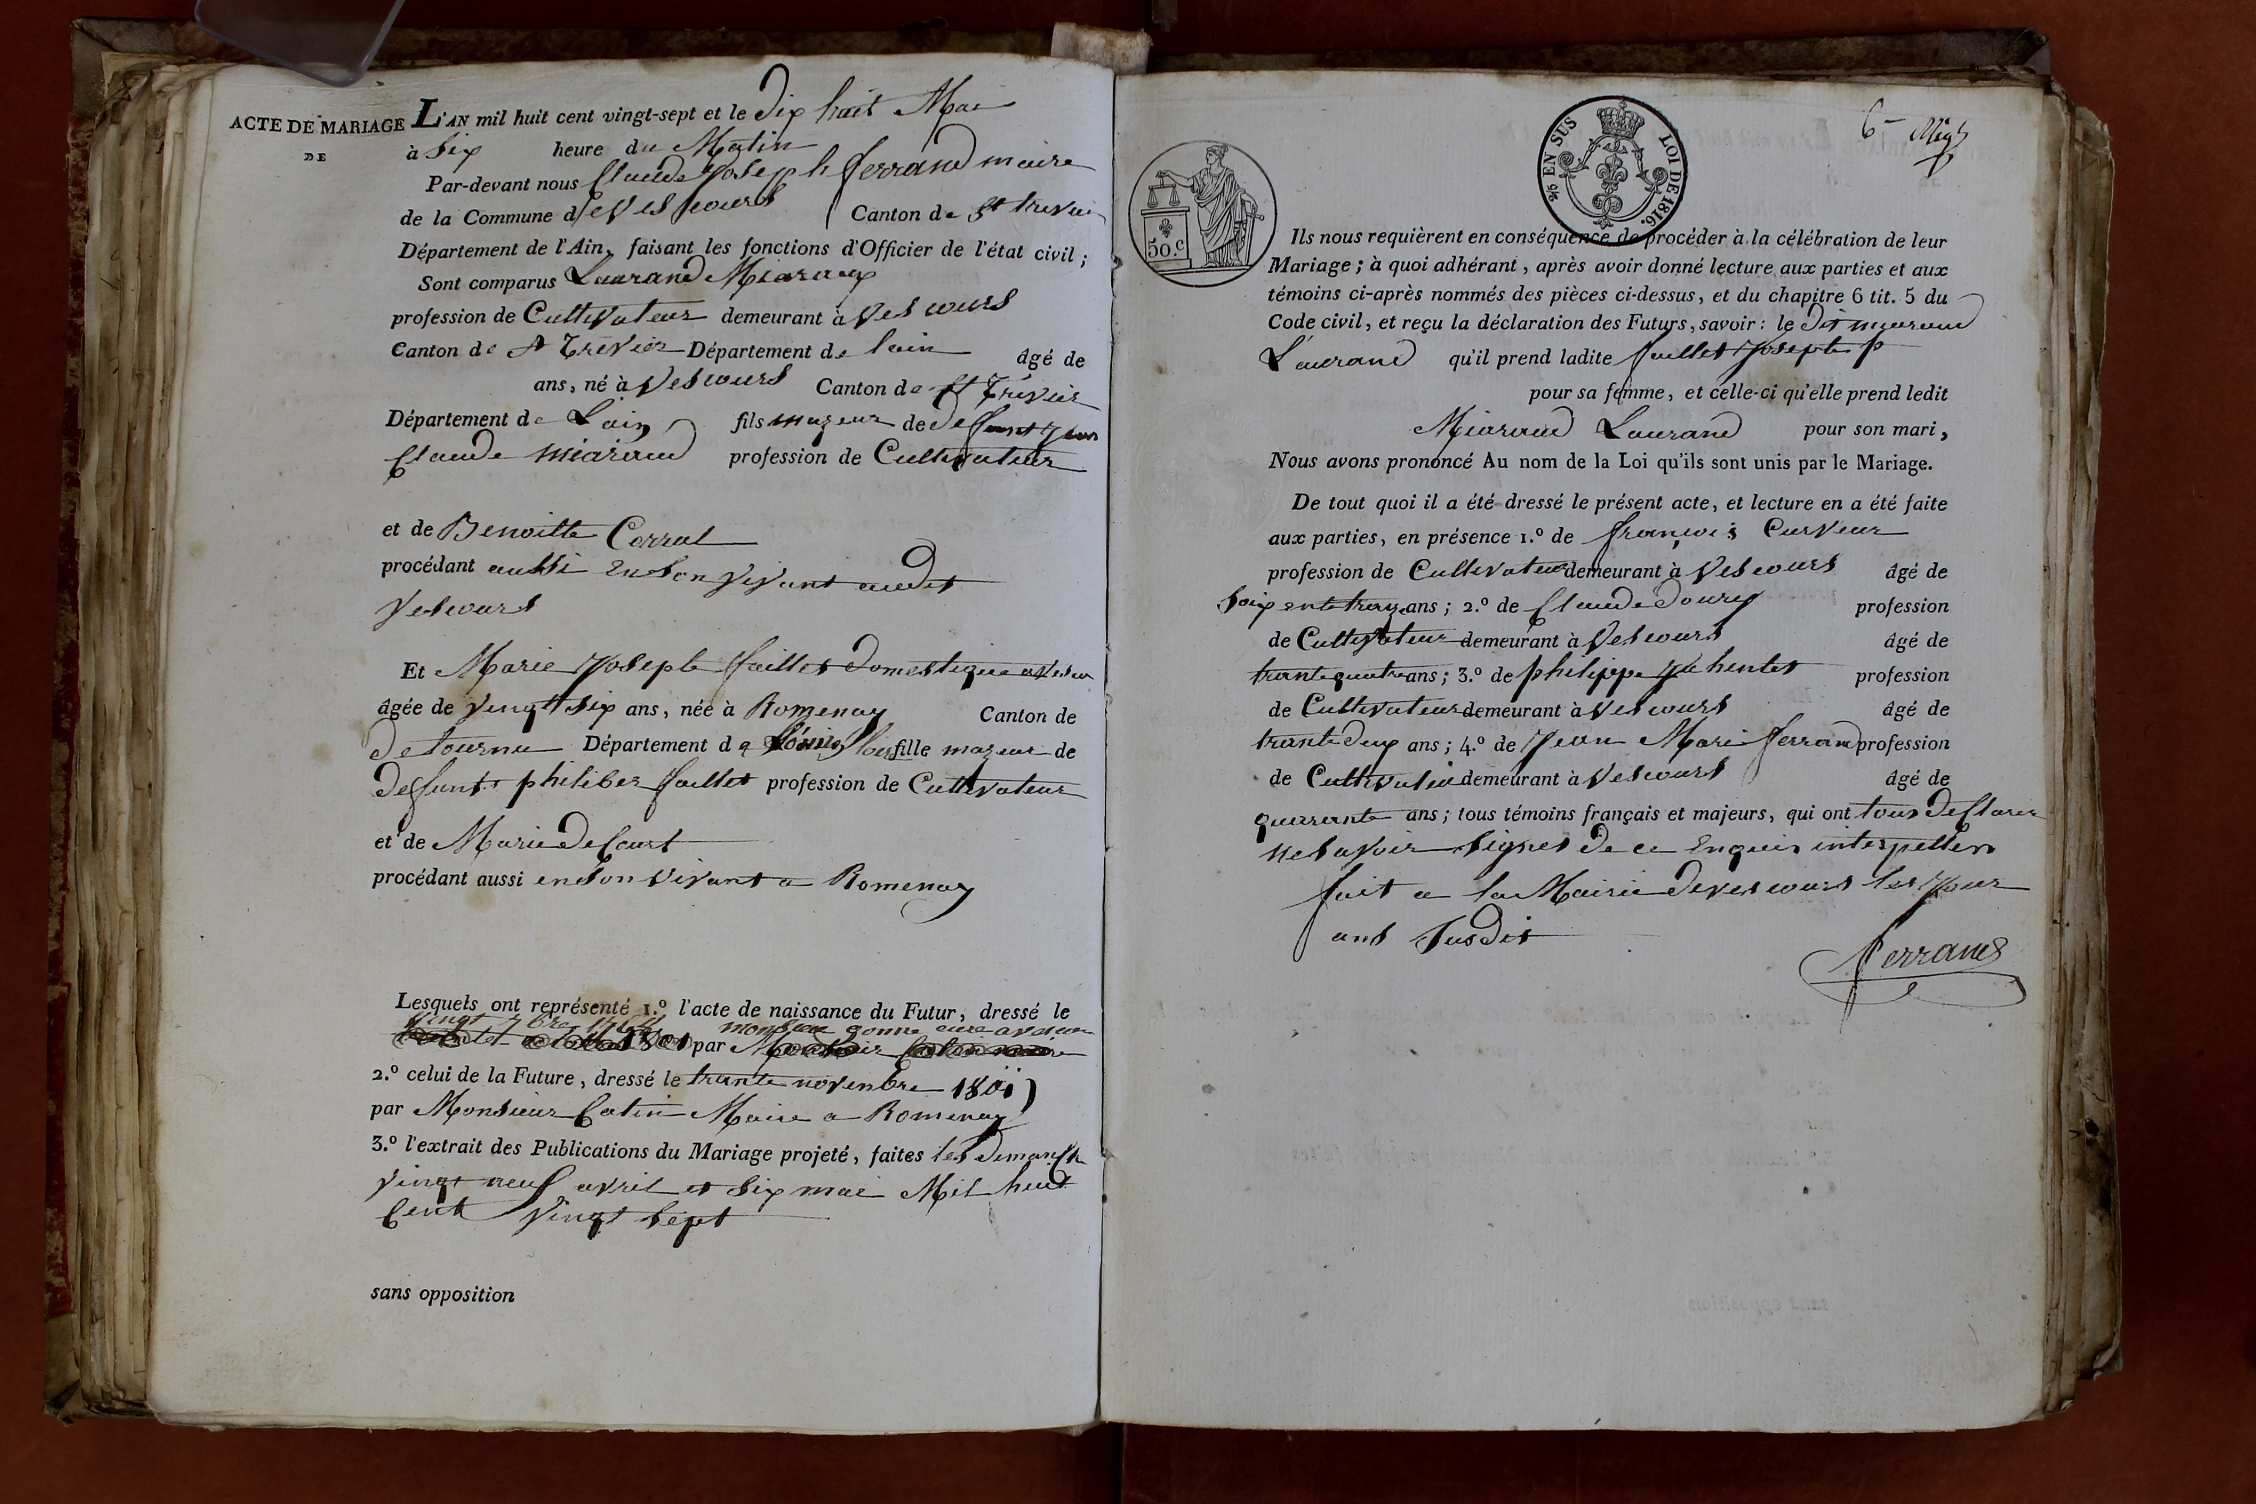 ACTE DE MARIAGE
DE
L'AN mil huit cent vingt-sept et le dix huit Mai
à Six heure du Matin
Par-devant nous Claude Joseph ferrand maire
de la Commune de Vescours Canton de St trivier
Département de l'Ain, faisant les fonctions d'Officier de l'état civil ;
Sont comparus Laurand Miaraud
profession de Cultivateur demeurant à Vescours
Canton de St Trivier Département de lain âgé de
ans, né à Vescours Canton de St Trivier
Département de Lain fils mageur de deffunt Jean
Claude miaraud profession de Cultivateur
et de Benoitte Corral
procédant aussi En Son Vivant audit
Vescours
Et Marie Joseph faillet domestique a Vescou
âgée de Vingt Six ans, née à Romenay Canton de
de tournu Département de loire fille mageur de
deffunt philiber faillet profession de Cultivateur
et de Marie decourt
procédant aussi en Son Vivant a Romenay
Lesquels ont représenté 1.º l'acte de naissance du Futur, dressé le
Vingt 7bre monsieur gonne cure a vescour
par
2.º celui de la Future, dressé le trante novenbre 1801
par Monsieur Catin Maire a Romenay
3.º l'extrait des Publications du Mariage projeté, faites les dimanche
Vingt neuf avril et Six mai Mil huit
Cent Vingt Sept
sans opposition
50.c
EN SUS LOI DE 1816.
6
Ils nous requièrent en conséquence de procéder à la célébration de leur
Mariage ; à quoi adhérant, après avoir donné lecture aux parties et aux
témoins ci-après nommés des pièces ci-dessus, et du chapitre 6 tit. 5 du
Code civil, et reçu la déclaration des Futurs, savoir : le dit miaraud
Laurand qu'il prend ladite faillet Joseph
pour sa femme, et celle-ci qu'elle prend ledit
Miaraud Laurand pour son mari,
Nous avons prononcé Au nom de la Loi qu'ils sont unis par le Mariage.
De tout quoi il a été dressé le présent acte, et lecture en a été faite
aux parties, en présence 1.º de françois Curveur
profession de Cultivateur demeurant à Vescours âgé de
Soixente traize ans ; 2.º de Claude doury profession
de Cultivateur demeurant à Vescours âgé de
trante quatre ans ; 3.º de philippe profession
de Cultivateur demeurant à Vescours âgé de
trante deux ans ; 4.º de Jean Marie ferrand profession
de Cultivateur demeurant à Vescours âgé de
quarante ans ; tous témoins français et majeurs, qui ont tous declarer
ne Savoir Signer de ce Enquis interpeller
fait a la Mairie de Vescours les Jour
ans Susdit
ferrand